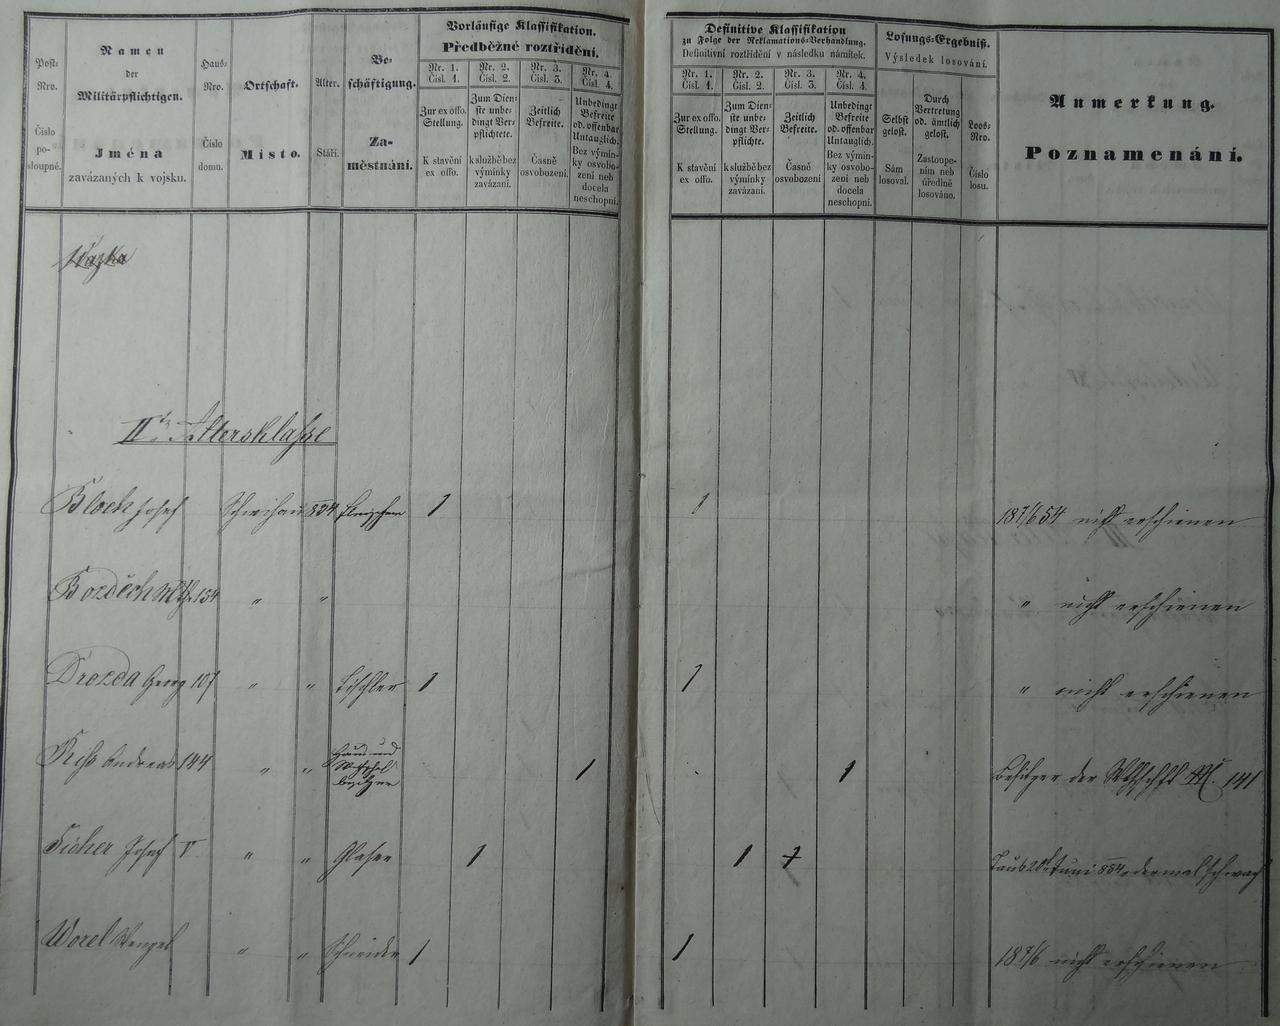 Post-
Nro.
Číslo
po-
sloupné.
Namen
der
Militärpflichtigen.
Jména
zavázaných k vojsku.
Haus-
Nro.
Číslo
domu.
Ortschaft.
Místo.
Alter.
Stáří.
Be-
schäftigung.
Za-
městnání.
Vorläufige Klassifikation.
Předběžné roztřídění.
Nr. 1.
Čísl. 1.
Zur ex offo.
Stellung.
K stavění
ex offo.
Nr. 2.
Čísl. 2.
Zum Dien-
ste unbe-
dingt Ver-
pflichtete.
k službě bez
výmínky
zavázaní.
Nr. 3.
Čísl. 3.
Zeitlich
Befreite.
Časně
osvobození.
Nr. 4.
Čísl. 4.
Unbedingt
Befreite
od. offenbar
Untauglich.
Bez výmín-
ky osvobo-
zení neb
docela
neschopní.
Definitive Klassifikation
zu Folge der Reklamations-Verhandlung.
Definitivní roztřídění v následku námitek.
Nr. 1.
Čísl. 1.
Zur ex offo.
Stellung.
K stavění
ex offo.
Nr. 2.
Čísl. 2.
Zum Dien-
ste unbe-
dingt Ver-
pflichte.
k službě bez
výmínky
zavázaní.
Nr. 3.
Čísl. 3.
Zeitlich
Befreite.
Časně
osvobození
Nr. 4.
Čísl. 4.
Unbedingt
Befreite
od. offenbar
Untauglich.
Bez výmín-
ky osvobo-
zení neb
docela
neschopní.
Losungs-Ergebniß.
Výsledek losování.
Selbst
gelost.
Sám
losoval.
Durch
Vertretung
od. ämtlich
gelost.
Zastoupe-
ním neb
úředlně
losováno.
Loos-
Nro.
Číslo
losu.
Anmerkung.
Poznamenání.
IIte Altersklasse
Bloch Josef Schwihau 834 1 1 187/6 54 nicht erschienen
Bozděch 154 " " " nicht erschienen
Drozda Georg 107 " " Tischler 1 1 " nicht erschienen
Keß Andreas 144 " " Haus und
Wthschfts
besitzer 1 1 Besitzer der Wthschft N. 141
Ficher Josef V " " Glaser 1 1 7 Laut 20t Juni 854 dermal schwach
Worel Wenzel " " Schneider 1 1 187/6 nicht erschienen